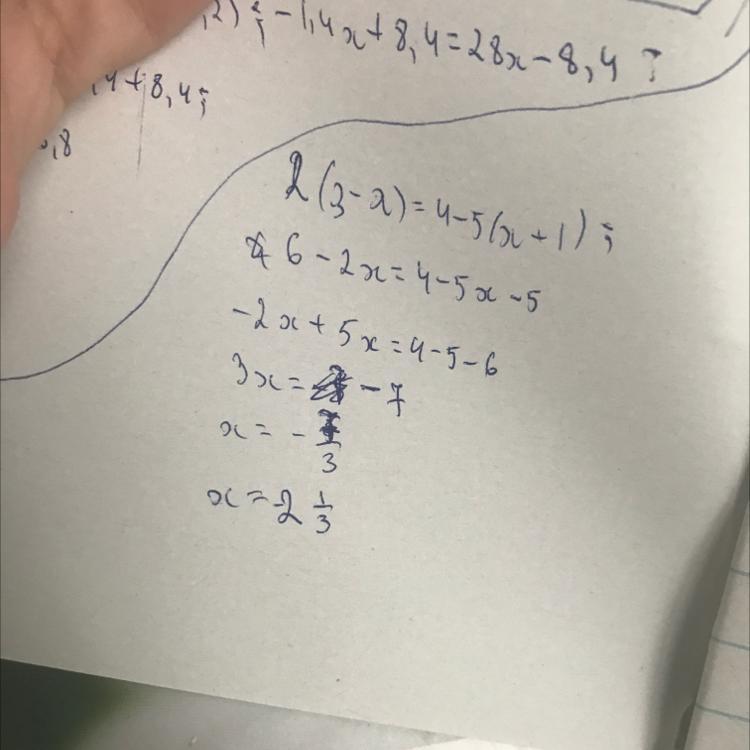 ,2) ; -1,4x+8,4=28x-8,4 ;
,4+8,4;
,8
2(3-x)=4-5(x+1);
6-2x=4-5x-5
-2x+5x=4-5-6
3x= -7
x= -7/3
x=-2 1/3